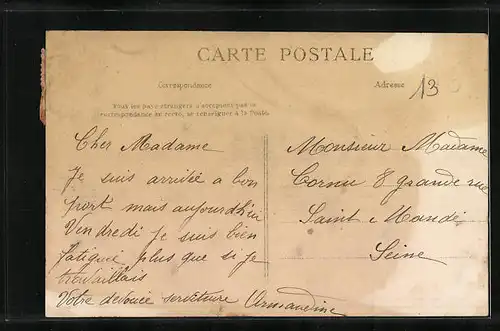 CARTE POSTALE
Correspondance
Adresse
13
Tous les pays étrangers n'acceptent pas la
correspondance au verso, se renseigner à la Poste.
Cher Madame
Je suis arrivée a bon
port mais aujourdhui
Vindredi je suis bien
fatigue, plus que si je
travaillais
Votre devouée serviteure Armandine
Monsieur Madame
Cornu 8 grande rue
Saint Mandé
Seine